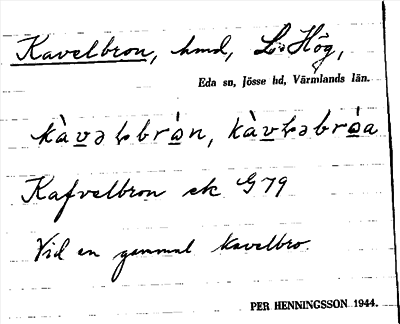 Kavelbron, hmd, L:a Hög,
Eda sn, Jösse hd, Värmlands län.
Kafvelbron ek G 79
Vid en gammal kavelbro.
PER HENNINGSSON 1944.